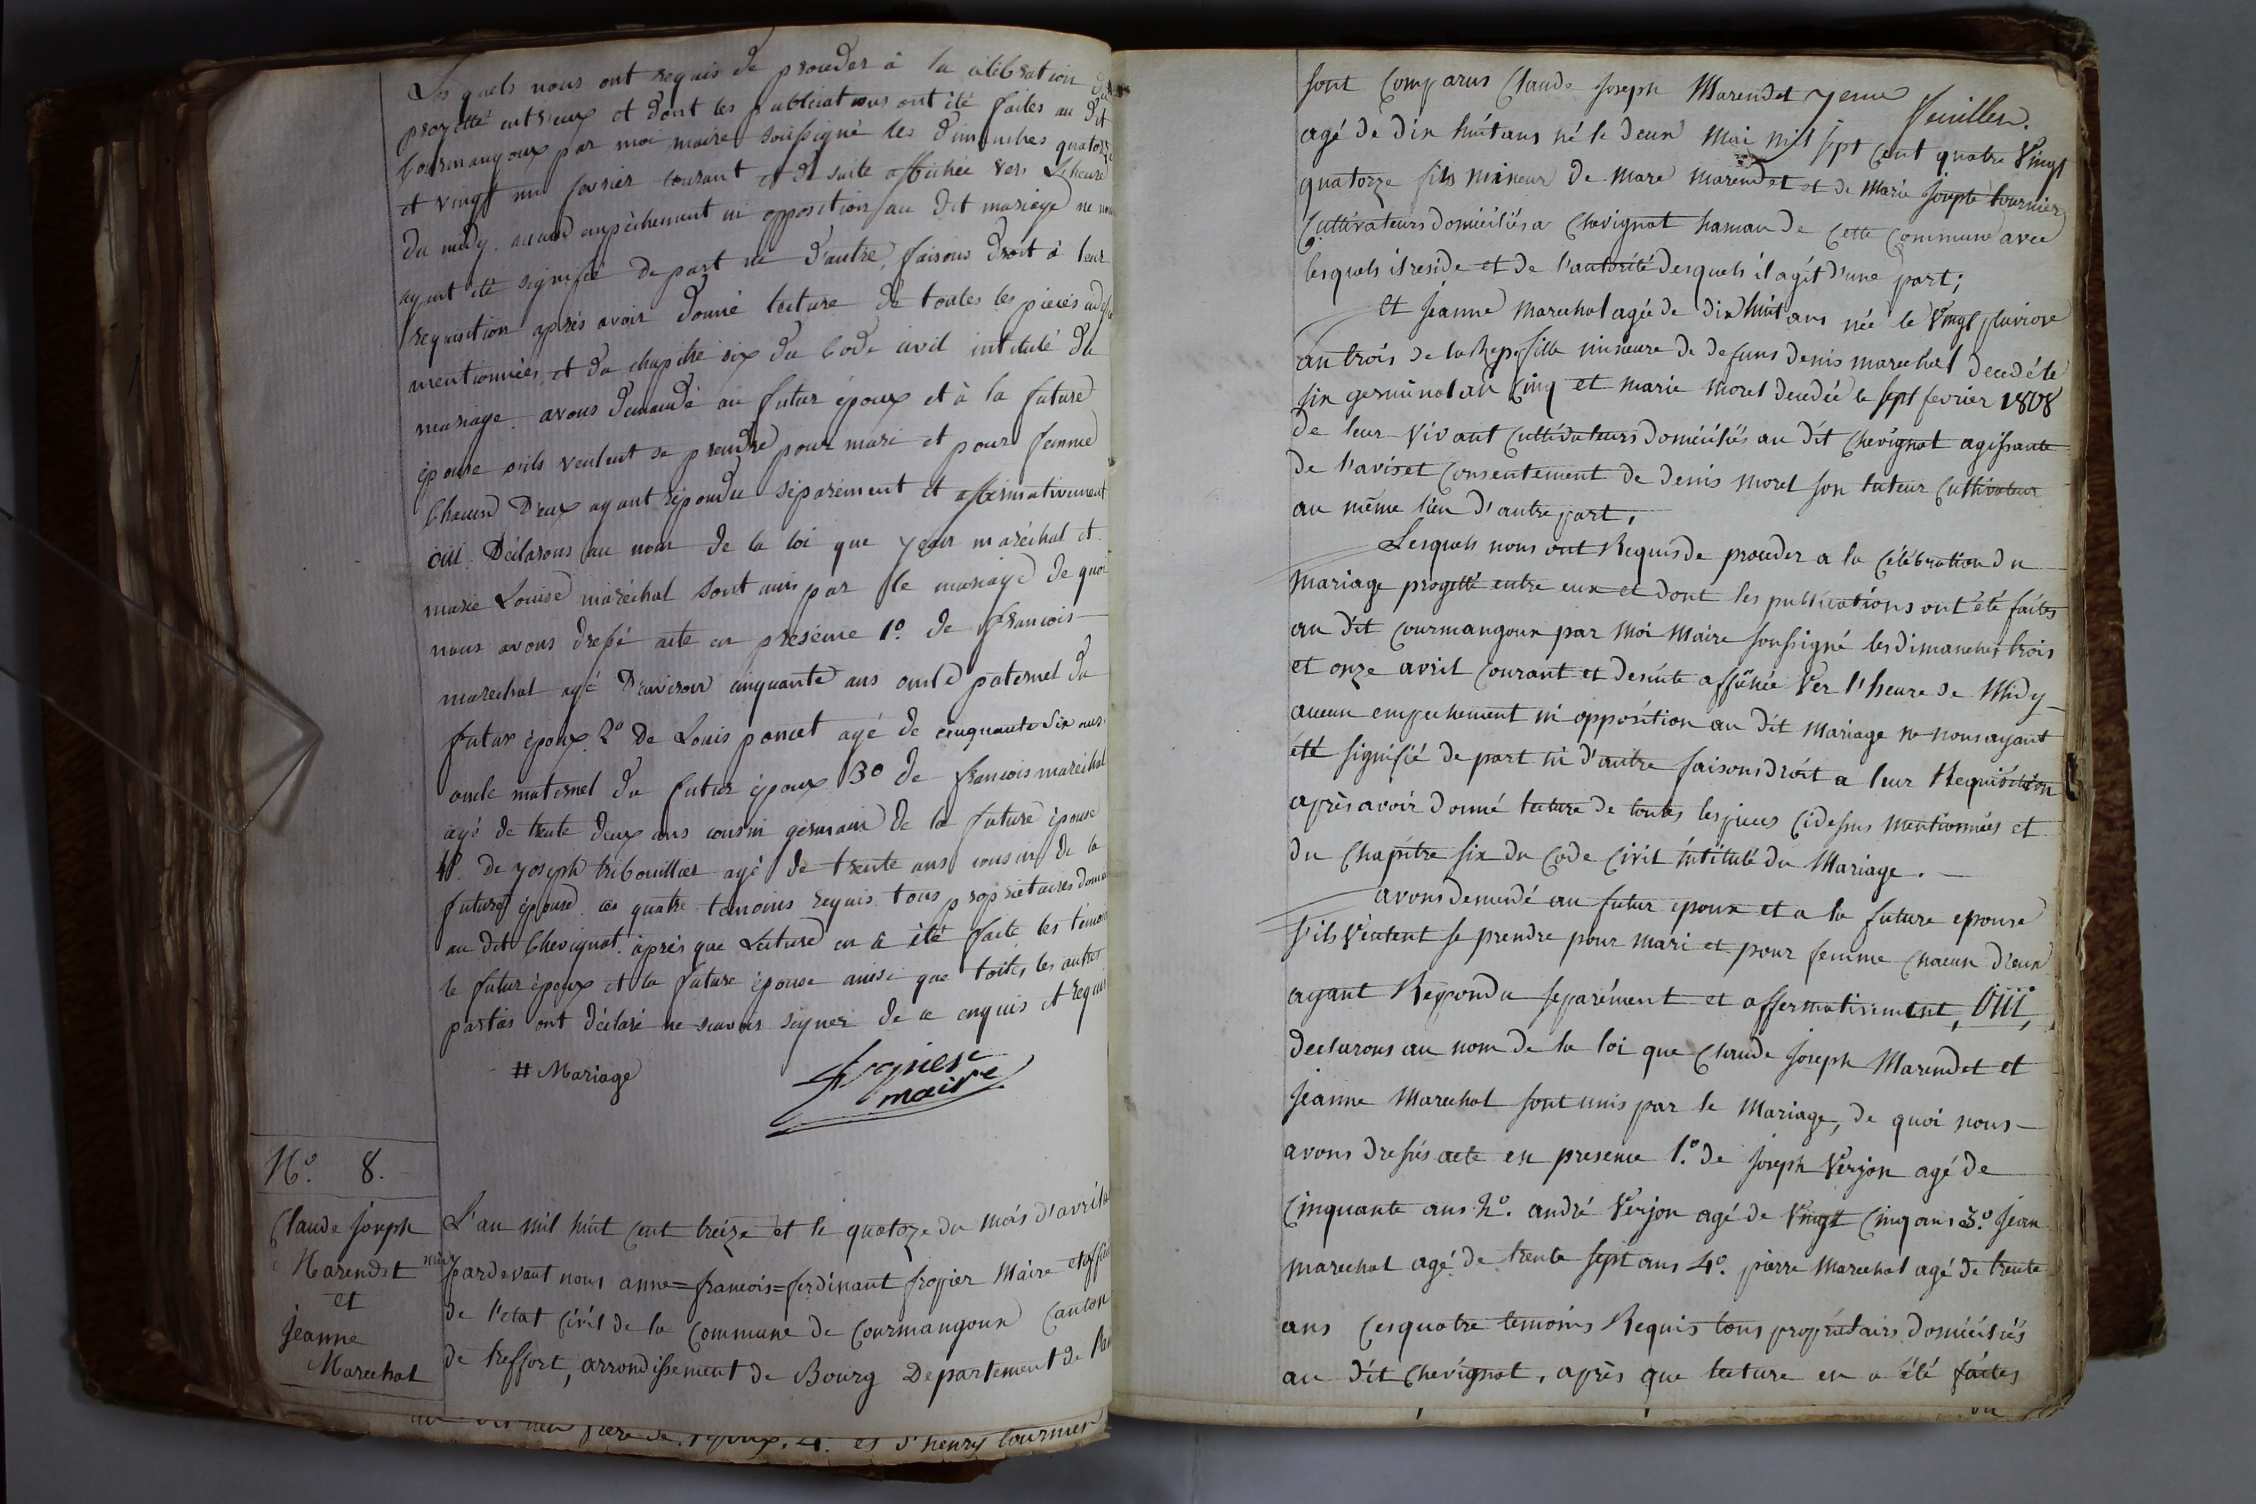 Lesquels nous ont requis de proceder à la célébration du
projetté entr'eux et dont les publications ont été faites au dit
Courmangoux par moi maire soussigné les dimanches quatorze
et vingt un fevrier courant et de suite affichée vers L'heure
du midy. aucun empêchement ni opposition au dit mariage ne nous
ayant été signifié de part ni d'autre, faisons droit à leur
requisition après avoir donné lecture de toutes les pièces
mentionnées, et du chapitre six du Code civil intitulé du
mariage. avons demandé au futur époux et à la future
épouse s'ils veulent se prendre pour mari et pour femme
Chacun D'eux ayant répondu séparément et affirmativement
oui. Déclarons au nom de la loi que maréchal et
marie Louise maréchal sont unis par le mariage de quoi
nous avons dressé acte en présence 1º. de françois
marechal agé D'environ cinquante ans oncle paternel du
futur époux. 2º De Louis poncet agé de cinquante Six ans
oncle maternel du futur époux 3º de françois maréchal
agé de trente deux ans cousin germain de la future épouse
4º. De yoseph tribouillet agé de trente ans cousin de la
future épouse. ces quatre temoins requis. tous proprietaires
au dit Chevignat. après que Lecture en a été faite les témoins
le futur époux et la future épouse ainsi que toutes les autres
parties ont déclaré ne scavoir signer de ce enquis et requis
# Mariage
maire
Nº. 8.
Claude Joseph
Marendet
et
Jeanne
Marechal
L'an mil huit cent treize et le quatoze du mois d'avril
pardevant nous anne=francois=ferdinant Maire
de l'etat Civil de la Commune de Courmangoux Canton
de treffort, arrondissement de Bourg Departement de
frere de l'epoux. 4. et henry tournier
sont Comparus Claude Joseph Marendet
agé de dix huit ans né le deux Mai mil sept cent quatre Vingt
quatorze fils mineur de marc marendet et de Marie Josepte tournier
Cultivateurs domiciliés a Chevignat hamau de Cette Commune avec
lesquels il reside et de l'autorité desquels il agit d'une part;
et Jeanne Marechal agée de dix huit ans née le Vingt pluviose
an trois de la Rep.e fille mineure de defuns denis marechal decedé le
six germinal an Cinq et marie morel decedée le sept fevrier 1808
de leur vivant Cultivateurs domiciliés au dit Chevignat agissante
de l'avis et Consentement de denis morel son tuteur Cultivateur
au même lieu d'autre part,
Lesquels nous ont Requis de proceder a la Célébration du
Mariage progetté entre eux et dont les publications ont été faites
au dit Courmangoux par moi Maire soussigné les dimanches trois
et onze avril Courant et de suite affichée Ver l'heure de Midy
aucun empechement ni opposition au dit Mariage ne nous ayant
été signifié de part ni d'autre faisons droit a leur Requisition
après avoir donné lecture de toutes les pieces Cidessus mentionnées et
du Chapitre six du Code Civil intitulé du Mariage.
avons demendé au futur epoux et a la future epouse
s'ils veulent se prendre pour mari et pour femme Chacun d'eux
ayant Repondu separément et affermativement, Oui,
declarons au nom de la loi que Claude Joseph Marendet et
Jeanne Marechal sont unis par le Mariage, de quoi nous
avons dressés acte en presence 1.º de Joseph Verjon agé de
Cinquante ans 2º. andré Verjon agé de Vingt Cinq ans 3.º Jean
marechal agé de trente sept ans 4º. pierre Marechal agé de trente
ans Ces quatre temoins Requis tous propriétairs domiciliés
au dit Chevignat, après que lecture en a été faites